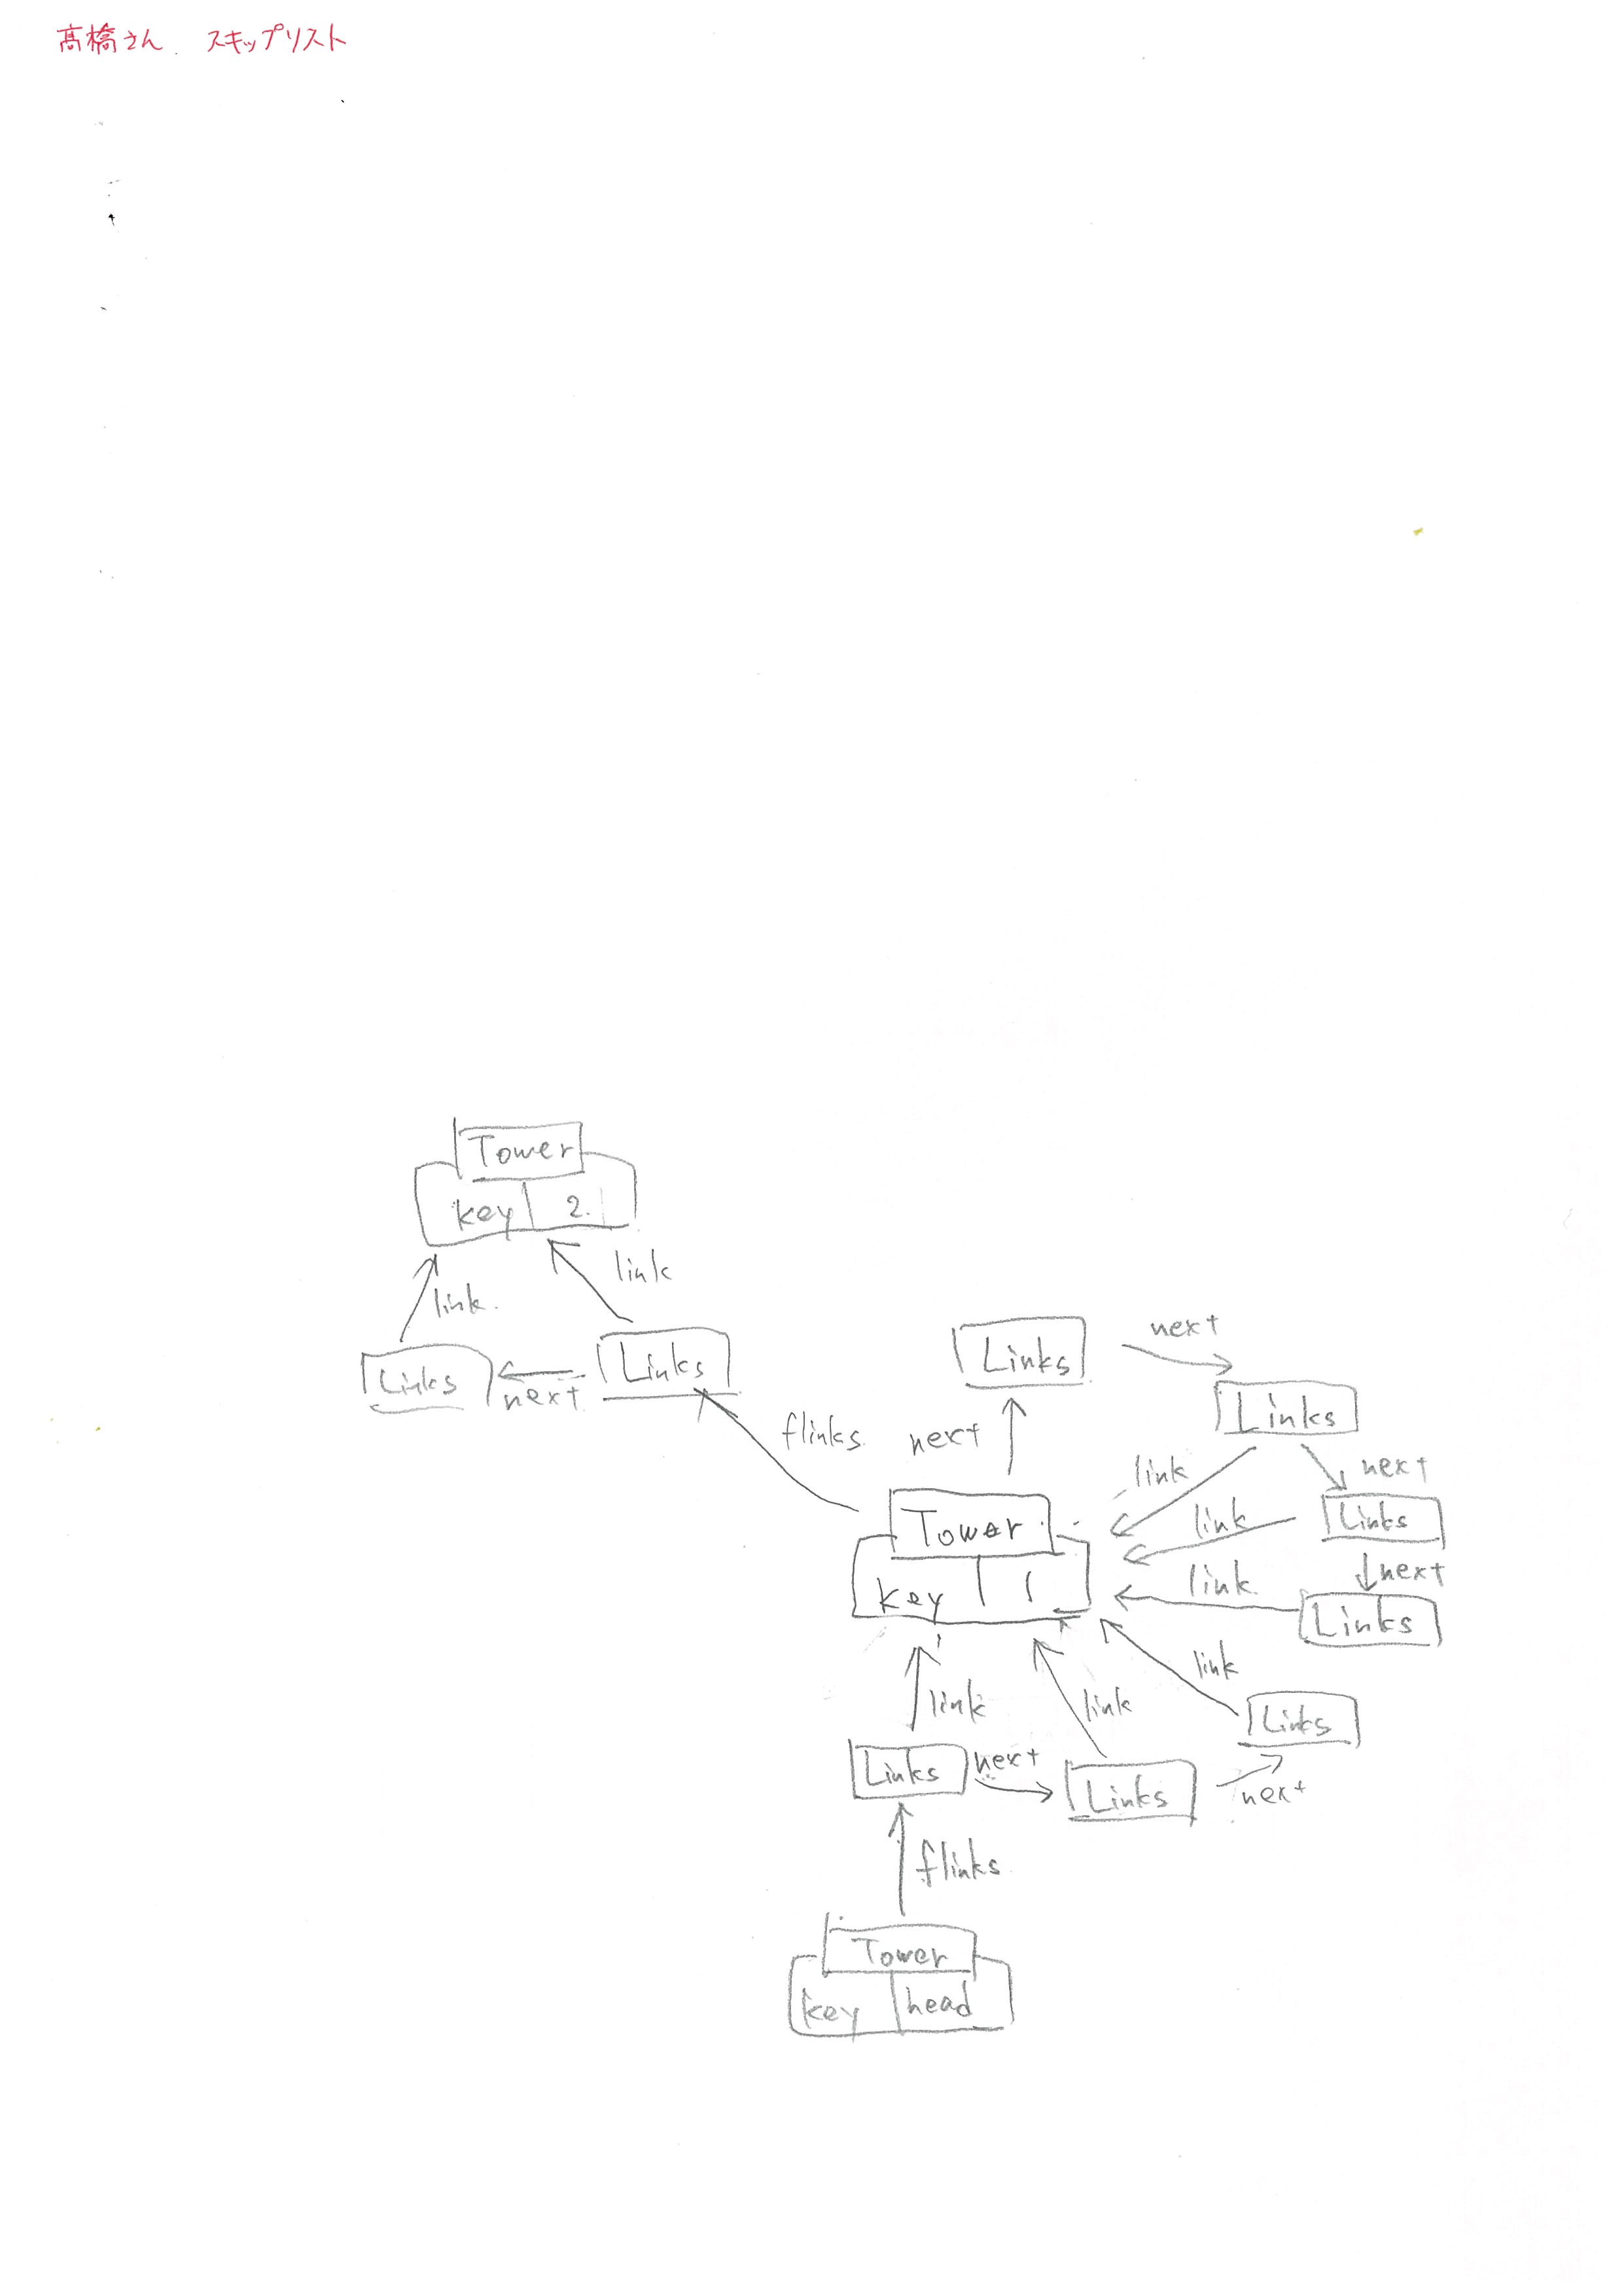 髙橋さん スキップリスト
Tower
key 2.
link
link.
Links
next
Links
flinks.
Links
next
Links
next
link
next
Tower
key 1
link
Links
next
link
Links
link
Links
link
link
Links
next
Links
next
flinks
Tower
key head